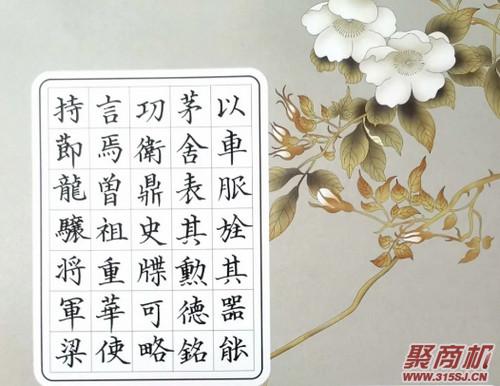 以車服旌其器能
茅舍表其勳德銘
功衛鼎史牒可略
言焉曾祖重華使
持節龍驤將軍梁
聚商机
WWW.315SJ.CN